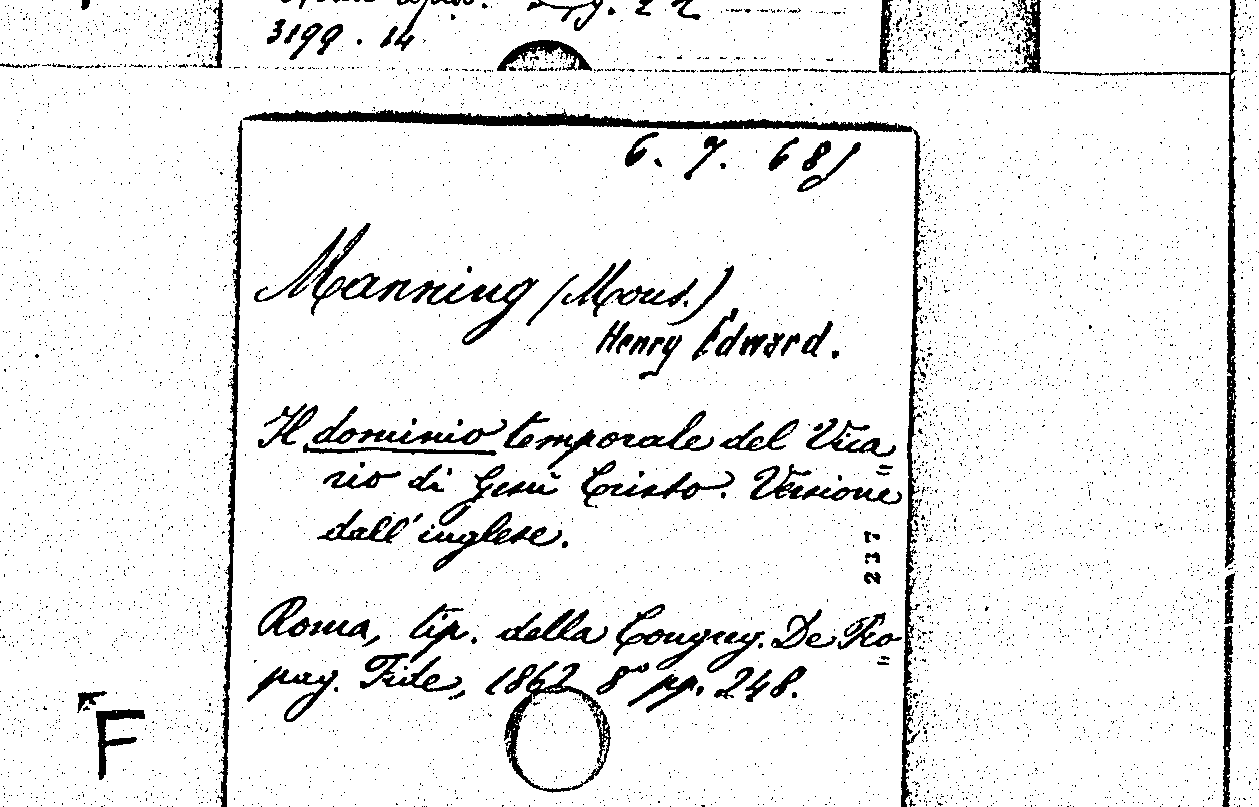 3199 . 14
6. 7. 68
Manning (Mons.)
Henry Edward.
Il dominio temporale del Vica=
rio di Gesù Cristo. Versione
dall'inglese.
237
Roma, tip. della Congreg. De Pro=
pag. Fide, 1862 8° pp. 248.
F